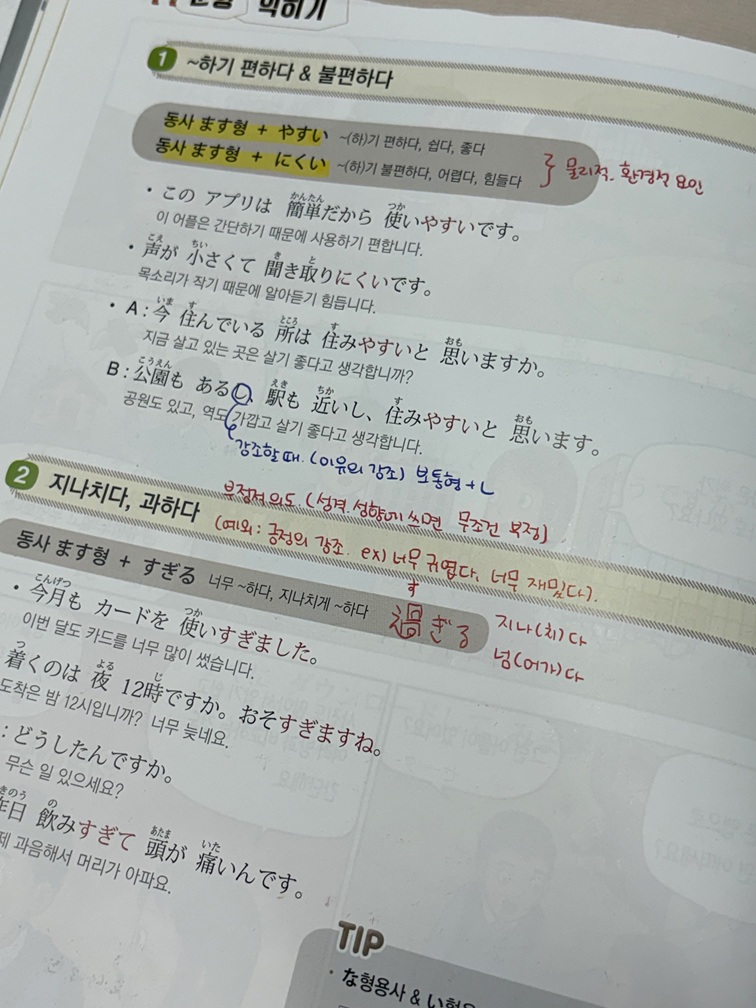 익히기
1 ~하기 편하다 & 불편하다
동사 ます형 + やすい ~(하)기 편하다, 쉽다, 좋다
동사 ます형 + にくい ~(하)기 불편하다, 어렵다, 힘들다
} 물리적, 환경적 요인
かんたん つか
・この アプリは 簡単だから 使いやすいです。
이 어플은 간단하기 때문에 사용하기 편합니다.
こえ ちい き と
・声が 小さくて 聞き取りにくいです。
목소리가 작기 때문에 알아듣기 힘듭니다.
いま す ところ す おも
・A : 今 住んでいる 所は 住みやすいと 思いますか。
지금 살고 있는 곳은 살기 좋다고 생각합니까?
こうえん えき ちか す おも
B : 公園も あるし、駅も 近いし、住みやすいと 思います。
공원도 있고, 역도 가깝고 살기 좋다고 생각합니다.
강조할 때. (이유의 강조) 보통형 + し
2 지나치다, 과하다
부정적 의도. (성격, 성향에 쓰면 무조건 부정)
(예외 : 긍정의 강조. ex) 너무 귀엽다, 너무 재밌다).
동사 ます형 + すぎる 너무 ~하다, 지나치게 ~하다
す
過ぎる
지나(치)다
넘(어가)다
こんげつ つか
・今月も カードを 使いすぎました。
이번 달도 카드를 너무 많이 썼습니다.
つ よる じ
着くのは 夜 12時ですか。おそすぎますね。
도착은 밤 12시입니까? 너무 늦네요.
: どうしたんですか。
무슨 일 있으세요?
きのう の あたま いた
昨日 飲みすぎて 頭が 痛いんです。
제 과음해서 머리가 아파요.
TIP
・な형용사 & い형용